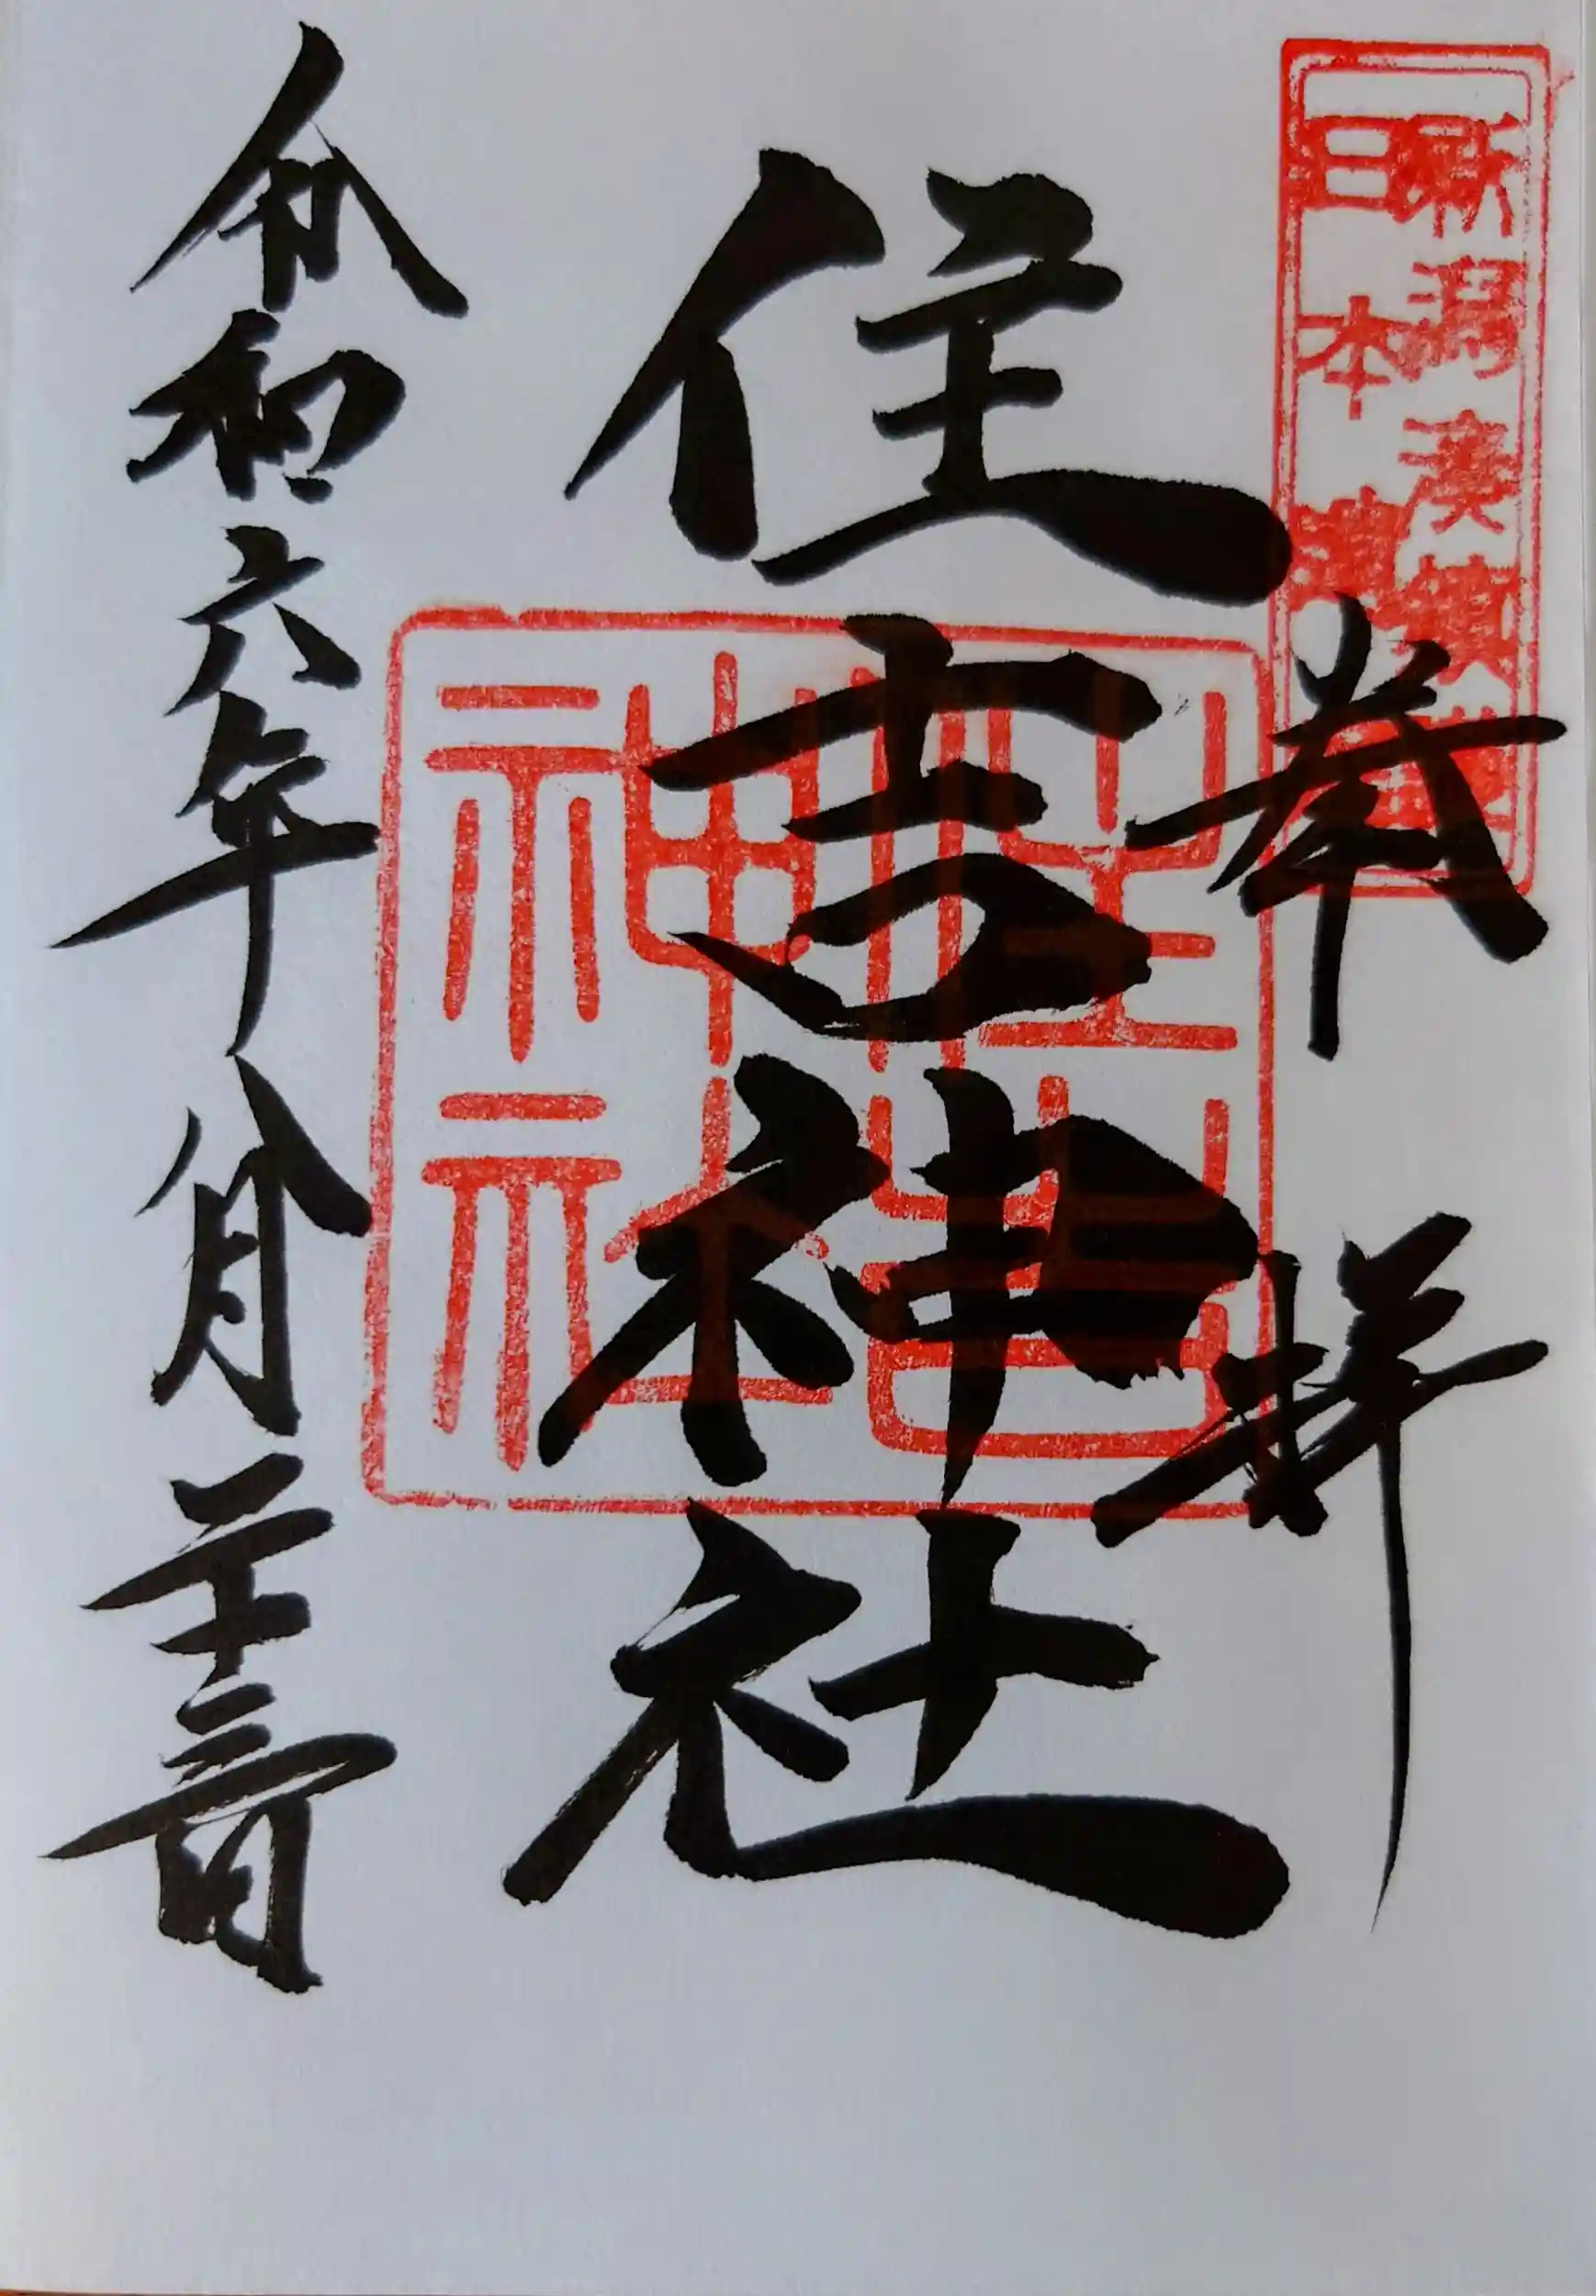 新潟湊鎮
日本
奉拝
住吉神社
住吉
神社
令和六年八月二十三日